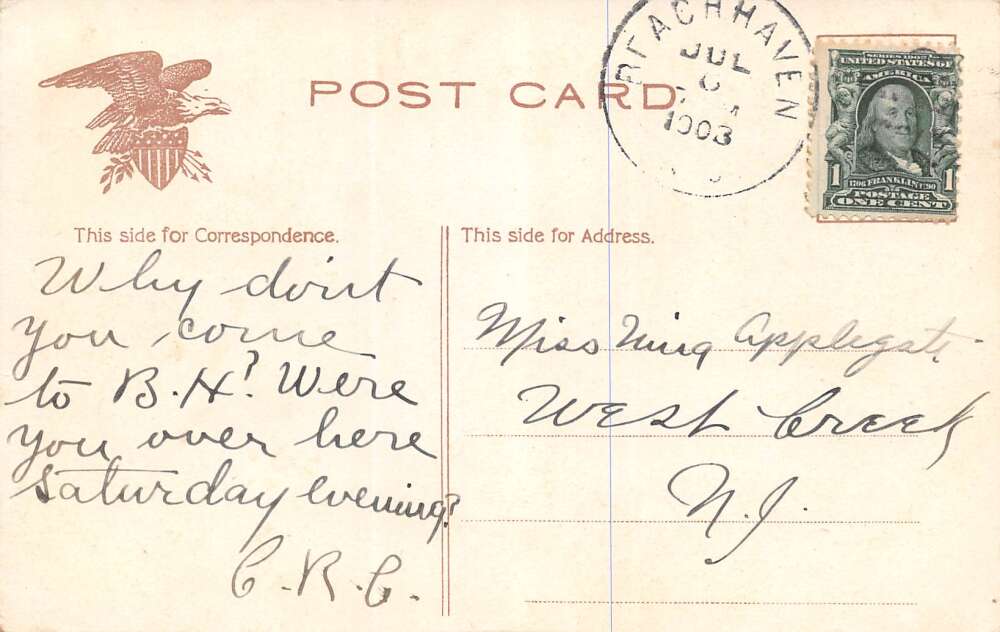 POST CARD
BEACH HAVEN
JUL
6
M
1908
SERIES 1902
UNITED STATES OF
AMERICA
1 1
1706 FRANKLIN 1790
POSTAGE
ONE CENT
This side for Correspondence.
Why don't
you come
to B.H? Were
you over here
Saturday evening?
C.R.C.
This side for Address.
Miss Applegate
West Creek
N.J.